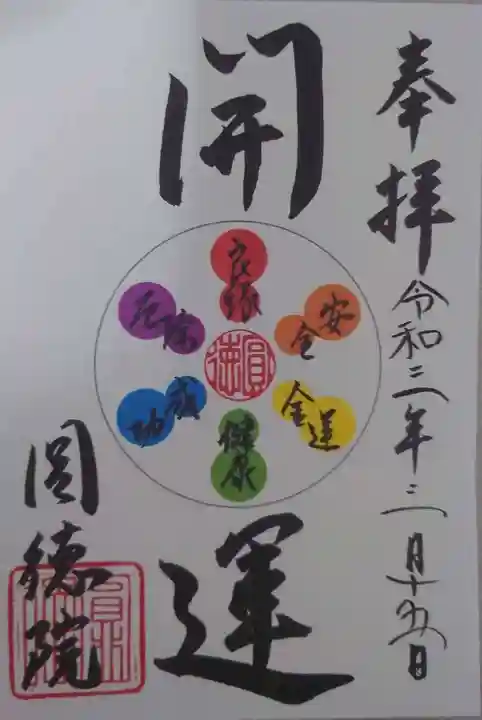 奉拝 令和三年三月十五日
開
運
良縁
安全
金運
健康
成功
厄除
圓徳
圓徳院